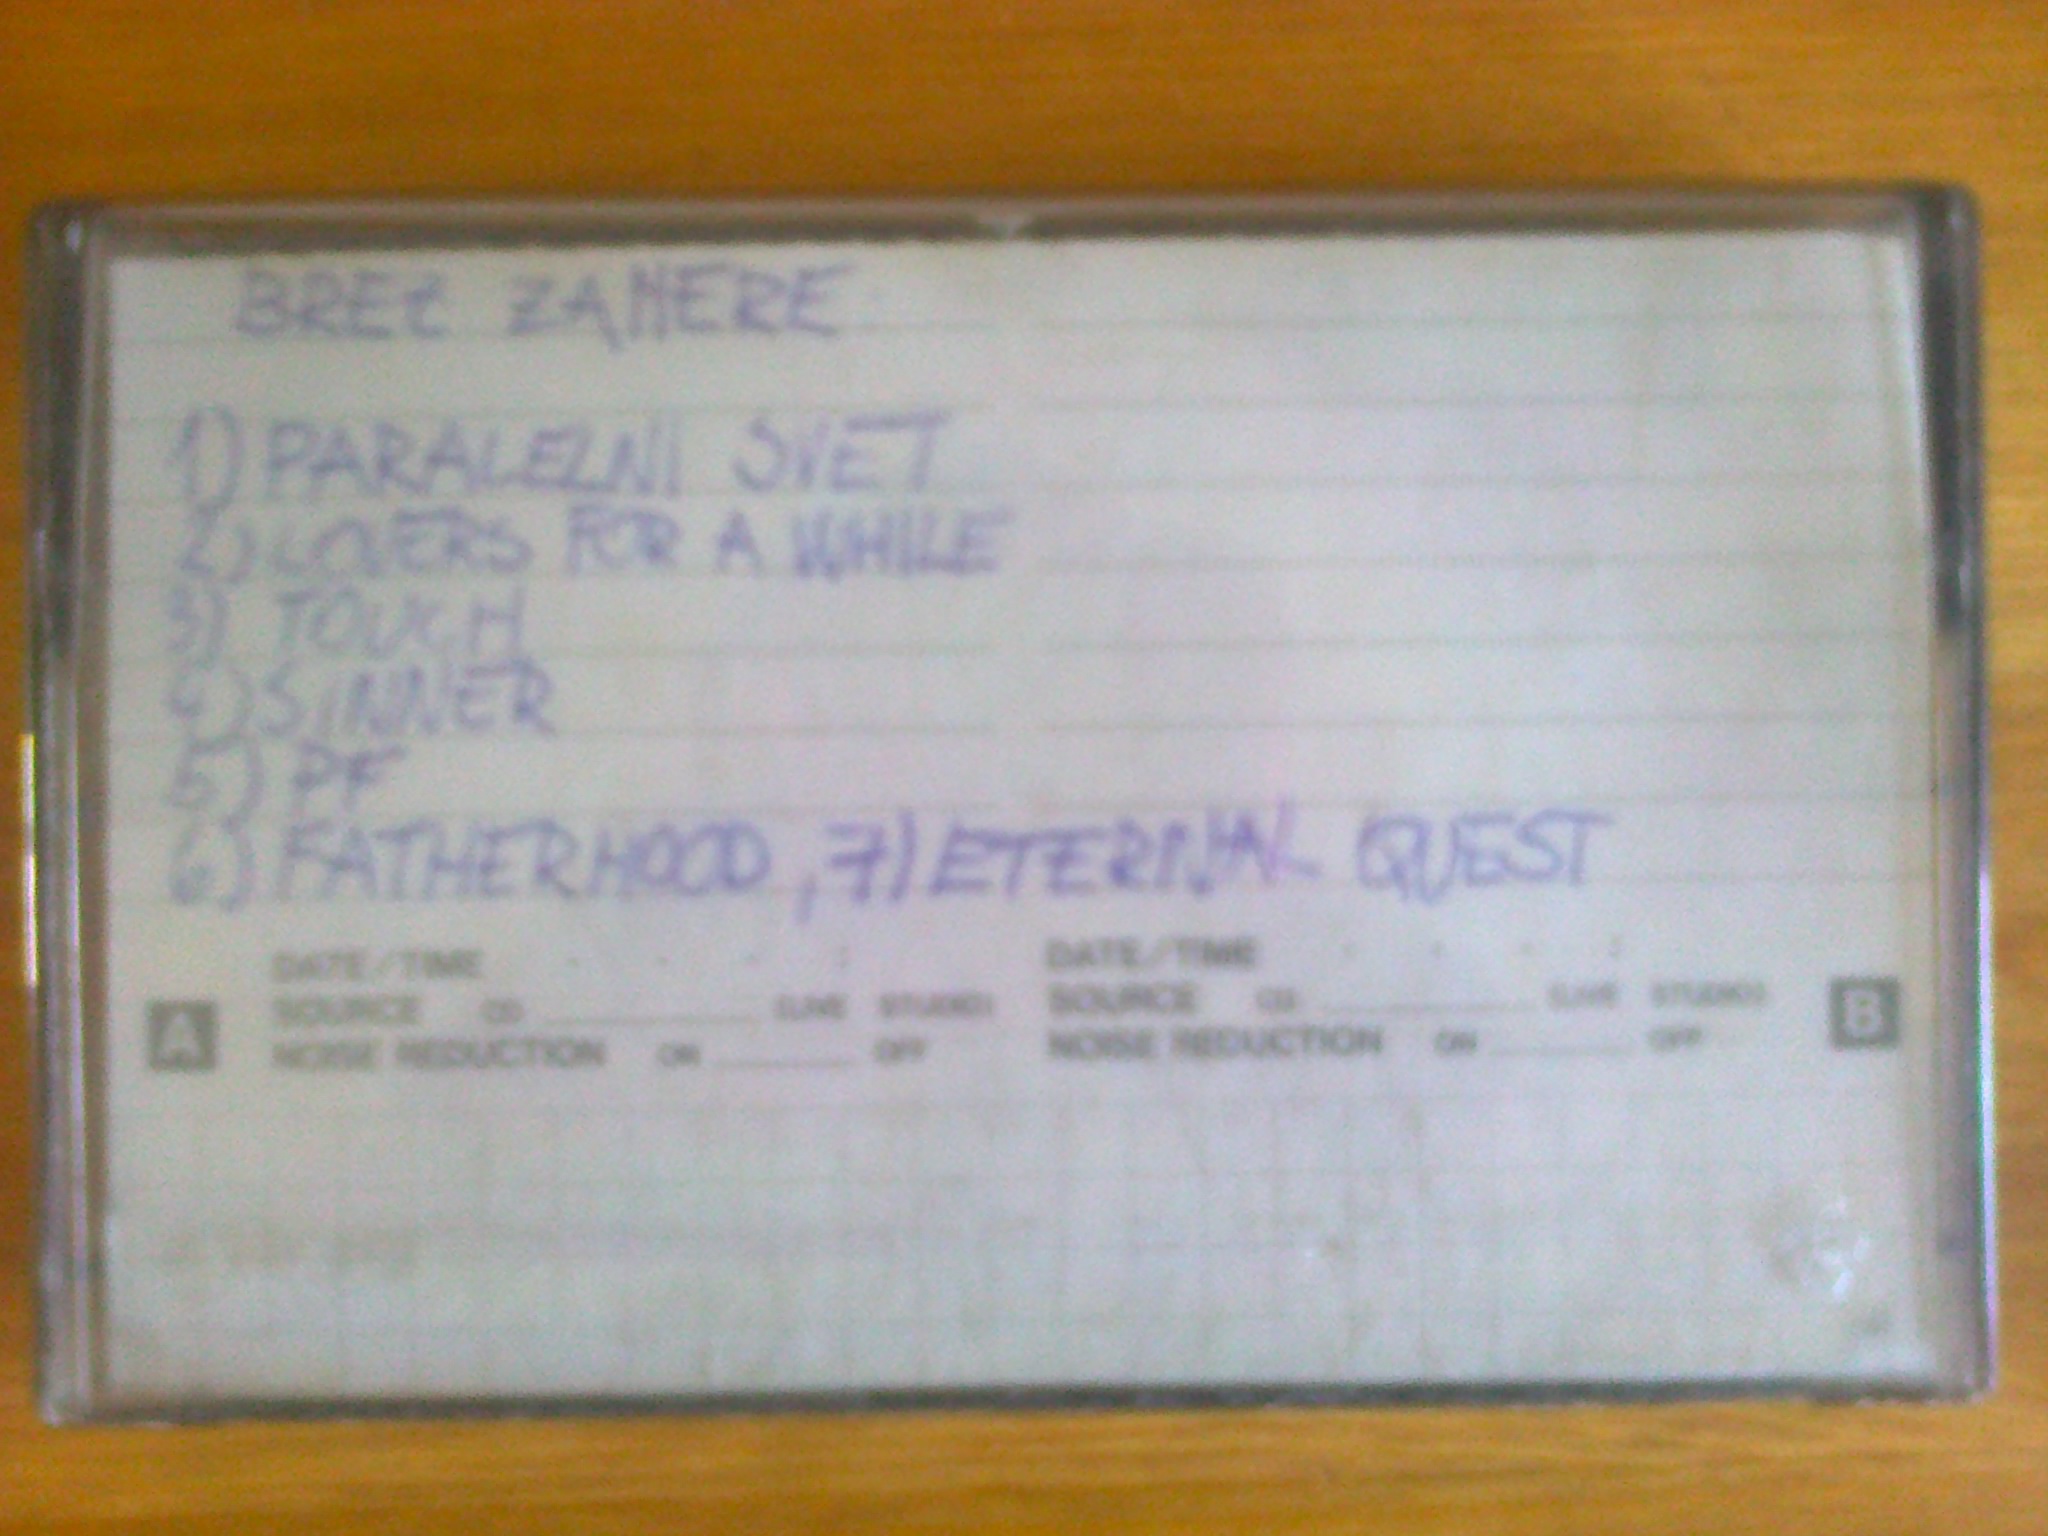 BREZ ZAMERE
1) PARALELNI SVET
2) LOVERS FOR A WHILE
3) TOUCH
4) SINNER
5) PF
6) FATHERHOOD, 7) ETERNAL QUEST
DATE/TIME . . . : DATE/TIME . . . :
A SOURCE CD (LIVE STUDIO) SOURCE CD (LIVE STUDIO) B
NOISE REDUCTION ON OFF NOISE REDUCTION ON OFF